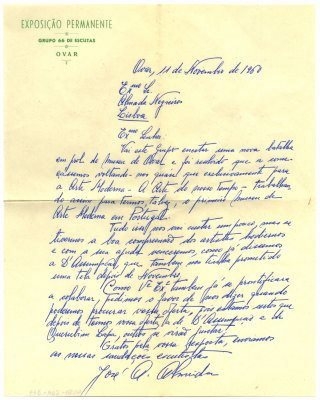 EXPOSIÇÃO PERMANENTE
GRUPO 66 DE ESCUTAS
OVAR
Ovar, 11 de Novembro de 1960
Exmo Sr.
Almada Negreiros
Lisboa
Exmo Senhor
Vai este grupo encetar uma nova batalha
em prol do museu de Ovar e foi resolvido que a
voltando-nos quasi que exclusivamente para
a Arte Moderna - A Arte do nosso Tempo - Trabalhan-
do assim para termos talvez, o primeiro museu de
Arte Moderna em Portugal.
Tudo isso nos vai custar um pouco mas se
tivermos a boa compreensão dos artistas
e com a sua ajuda venceremos, como já
a D'Assumpção que também nos tinha prometido
uma tela depois de Novembro.
Como Va Exa também já se prontificara
a colaborar, pedimos o favor de nos dizer quando
podemos procurar vossa oferta, pois estamos certos que
depois de termos vossa oferta, de D'Assumpção e de
muitos se virão juntar.
Gratos pela vossa resposta, enviamos
as nossas saudações escutistas
José A. Almeida